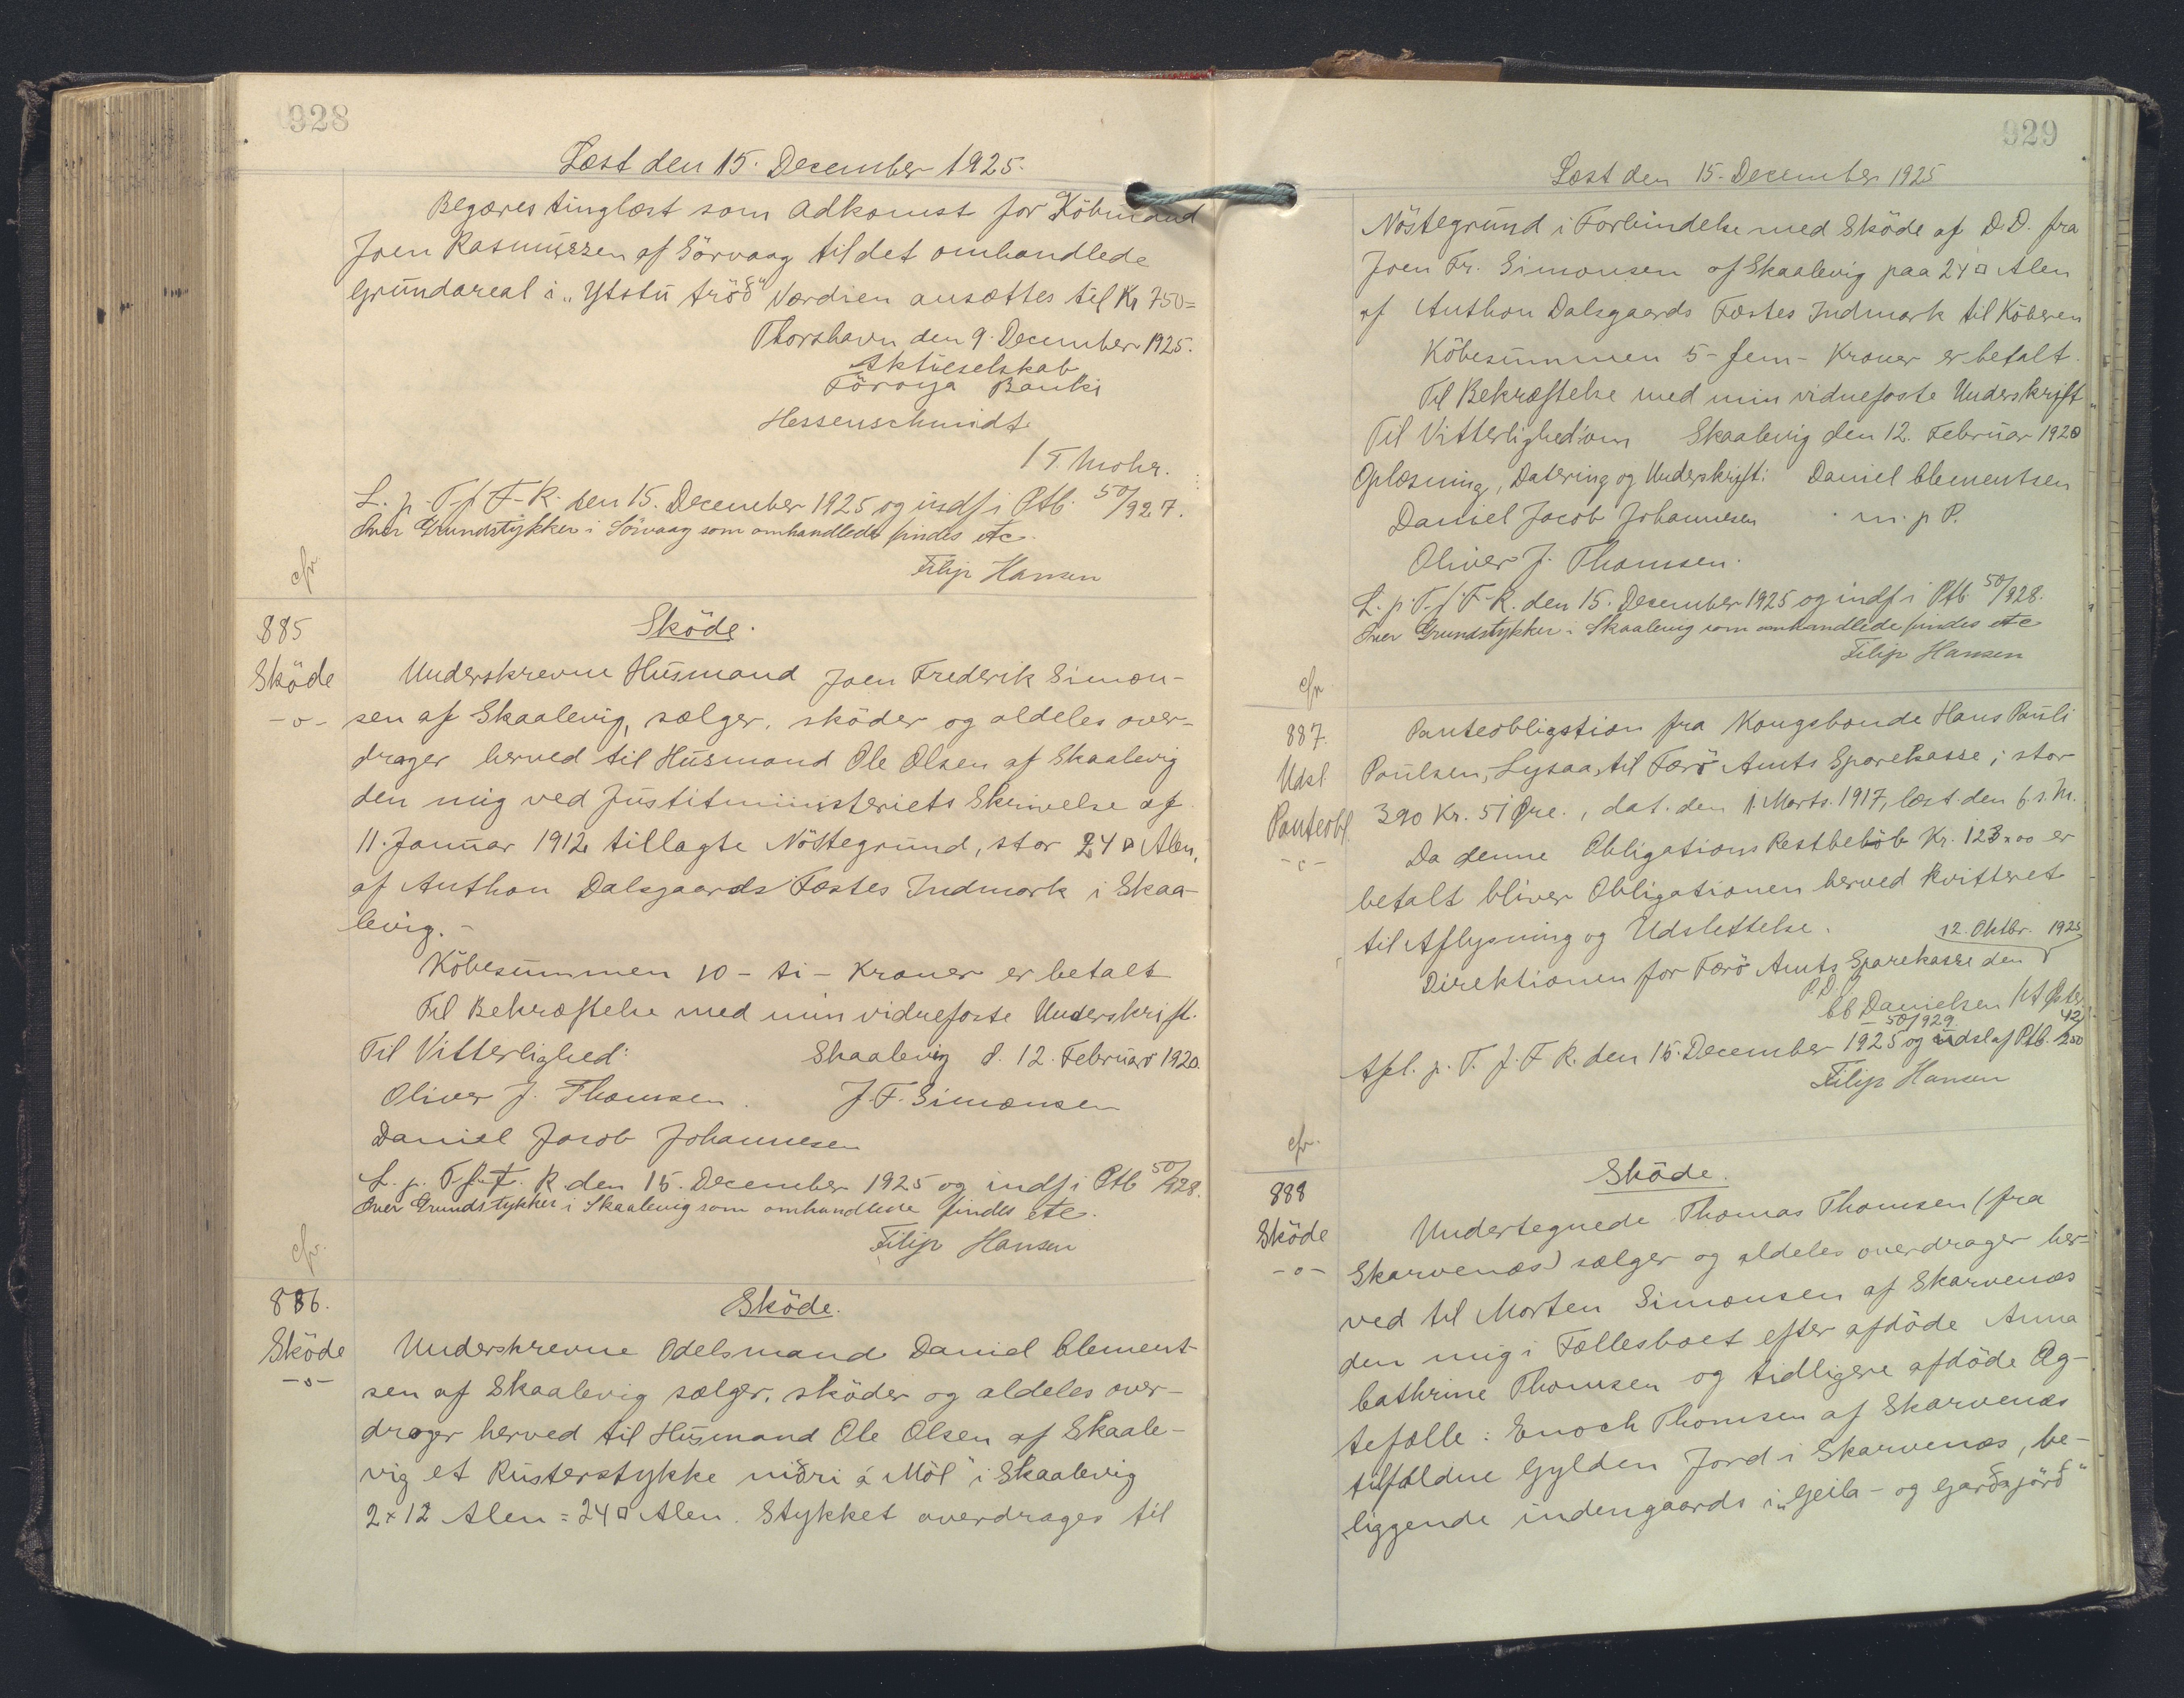 928
Læst den 15. December 1925.
Begæres tinglæst som Adkomst for Köbmand
Joen Rasmussen af Sörvaag til det omhandlede
Grundareal i „Ytstu tröð" Værdien ansættes til Kr 750=
Thorshavn den 9. December 1925.
Aktieselskab
Föroya Banki
Hessenschmidt
/ T. Mohr.
L. p. T. f. F. R. den 15. December 1925 og indf i Ptb. 50/927.
Over Grundstykker i Sörvaag som omhandlede findes etc.
Filip Hansen
cfr
885
Sköde
-o-
Sköde.
Underskrevne Husmand Joen Frederik Simon-
sen af Skaalevig, sælger, sköder og aldeles over-
drager herved til Husmand Ole Olsen af Skaalevig
den mig ved Justitministeriets Skrivelse af
11. Januar 1912 tillagte Nöstegrund, stor 24 □ Alen,
af Anthon Dalsgaards Fæstes Indmark i Skaa-
levig. -
Köbesummen 10 - ti - Kroner er betalt
Til Bekræftelse med min vidnefaste Underskrift.
Til Vitterlighed: Skaalevig d. 12. Februar 1920.
Oliver J. Thomsen. J. F. Simonsen
Daniel Jacob Johannesen
L. p. T. f. F. R den 15. December 1925 og indf i Ptb 50/928.
Over Grundstykker i Skaalevig som omhandlede findes etc.
Filip Hansen
cfr.
886.
Sköde
-o-
Sköde.
Underskrevne Odelsmand Daniel Clement-
sen af Skaalevig sælger, sköder og aldeles over-
drager herved til Husmand Ole Olsen af Skaale-
vig et Rusterstykke niðri á Möl" i Skaalevig
2 × 12 Alen = 24 □ Alen. Stykket overdrages til
929
Læst den 15. December 1925
Nöstegrund i Forbindelse med Sköde af D.D. fra
Joen Fr. Simonsen af Skaalevig paa 24 □ Alen
af Anthon Dalsgaards Fæstes Indmark til Köberen
Köbesummen 5 - fem - Kroner er betalt.
Til Bekræftelse med min vidnefaste Underskrift
Til Vitterlighed om Skaalevig den 12. Februar 1920
Oplæsning, Datering og Underskrift: Daniel Clementsen
Daniel Jacob Johannesen m. p P.
Oliver J. Thomsen.
L. p. T. f. F. R. den 15. December 1925 og indf i Ptb 50/928.
Over Grundstykker i Skaalevig som omhandlede findes etc
Filip Hansen
cfr
887.
Udsl
Panteobl.
-c-
Panteobligation fra Kongsbonde Hans Pauli
Paulsen, Lysaa, til Færö Amts Sparekasse, stor
390 Kr. 51 Øre., dat. den 1. Marts. 1917, læst den 6. s. M.
Da denne Obligations Restbelöb Kr. 123 =00 er
betalt bliver Obligationen herved kvitteret
til Aflysning og Udslettelse.
12. Oktbr. 1925
Direktionen for Færö Amts Sparekasse den
P. D. V
CC Danielsen
50/929
Afl. p. T. f. F R. den 15. December 1925 og udsl af Ptb. 42/250
Filip Hansen
cfr.
888
Sköde
-o-
Sköde.
Undertegnede Thomas Thomsen (fra
Skarvenæs) sælger og aldeles overdrager her-
ved til Morten Simonsen af Skarvenæs
den mig i Fællesboet efter afdöde Anna
Cathrine Thomsen og tidligere afdöde Æg-
tefælle: Enoch Thomsen af Skarvenæs
tilfaldne Gylden Jord i Skarvenæs, be-
liggende indengaards i „Geila - og Garðsjörð"